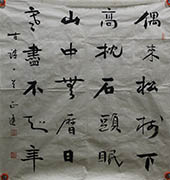 偶来松树下
高枕石頭眠
山中無曆日
寒盡不知年
古诗